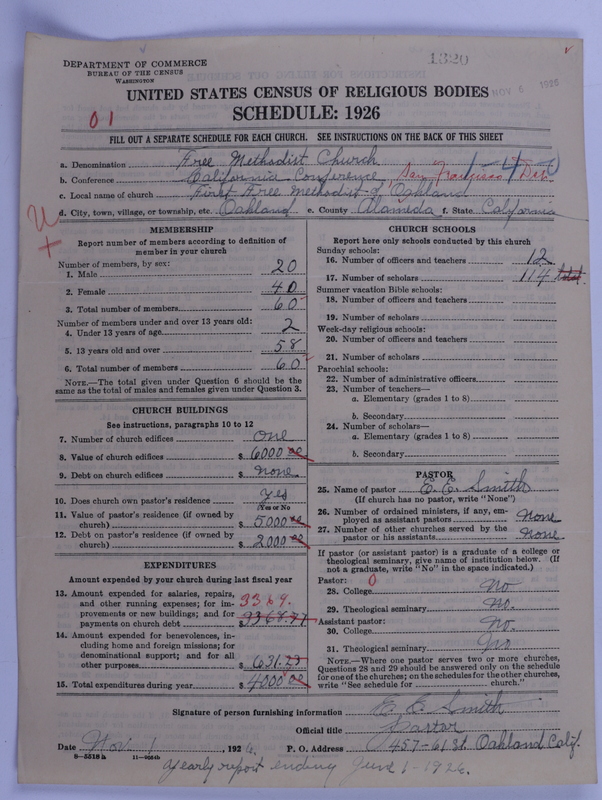 1320
DEPARTMENT OF COMMERCE
BUREAU OF THE CENSUS
WASHINGTON
NOV 6 1926
UNITED STATES CENSUS OF RELIGIOUS BODIES
SCHEDULE: 1926
01
FILL OUT A SEPARATE SCHEDULE FOR EACH CHURCH. SEE INSTRUCTIONS ON THE BACK OF THIS SHEET
a. Denomination Free Methodist Church 1-4-0
b. Conference California Conference San Francisco Dis
c. Local name of church First Free Methodist of Oakland
d. City, town, village, or township, etc. Oakland e. County Alameda f. State California
MEMBERSHIP
Report number of members according to definition of member in your church
Number of members, by sex:
1. Male 20
2. Female 40
3. Total number of members 60
Number of members under and over 13 years old:
4. Under 13 years of age 2
5. 13 years old and over 58
6. Total number of members 60
NOTE.—The total given under Question 6 should be the same as the total of males and females given under Question 3.
CHURCH BUILDINGS
See instructions, paragraphs 10 to 12
7. Number of church edifices One
8. Value of church edifices $ 6000 00
9. Debt on church edifices $ none
10. Does church own pastor's residence yes
(Yes or No)
11. Value of pastor's residence (if owned by church) $ 5000 00
12. Debt on pastor's residence (if owned by church) $ 2000 00
EXPENDITURES
Amount expended by your church during last fiscal year
13. Amount expended for salaries, repairs, and other running expenses; for improvements or new buildings; and for payments on church debt 3369. $ 3368.77
14. Amount expended for benevolences, including home and foreign missions; for denominational support; and for all other purposes $ 631.23
15. Total expenditures during year $ 4000 00
CHURCH SCHOOLS
Report here only schools conducted by this church
Sunday schools:
16. Number of officers and teachers 12
17. Number of scholars 114 total
Summer vacation Bible schools:
18. Number of officers and teachers
19. Number of scholars
Week-day religious schools:
20. Number of officers and teachers
21. Number of scholars
Parochial schools:
22. Number of administrative officers
23. Number of teachers—
a. Elementary (grades 1 to 8)
b. Secondary
24. Number of scholars—
a. Elementary (grades 1 to 8)
b. Secondary
PASTOR
25. Name of pastor E. E. Smith
(If church has no pastor, write "None")
26. Number of ordained ministers, if any, employed as assistant pastors None
27. Number of other churches served by the pastor or his assistants None
If pastor (or assistant pastor) is a graduate of a college or theological seminary, give name of institution below. (If not a graduate, write "No" in the space indicated.)
Pastor: 0
28. College No
29. Theological seminary No.
Assistant pastor:
30. College No.
31. Theological seminary No
NOTE.—Where one pastor serves two or more churches, Questions 28 and 29 should be answered only on the schedule for one of the churches; on the schedules for the other churches, write "See schedule for church."
Signature of person furnishing information E. E. Smith
Official title Pastor
Date Nov. 1, 1926. P. O. Address 457-61 St. Oakland Calif.
8-5518a
yearly report ending June 1-1926.